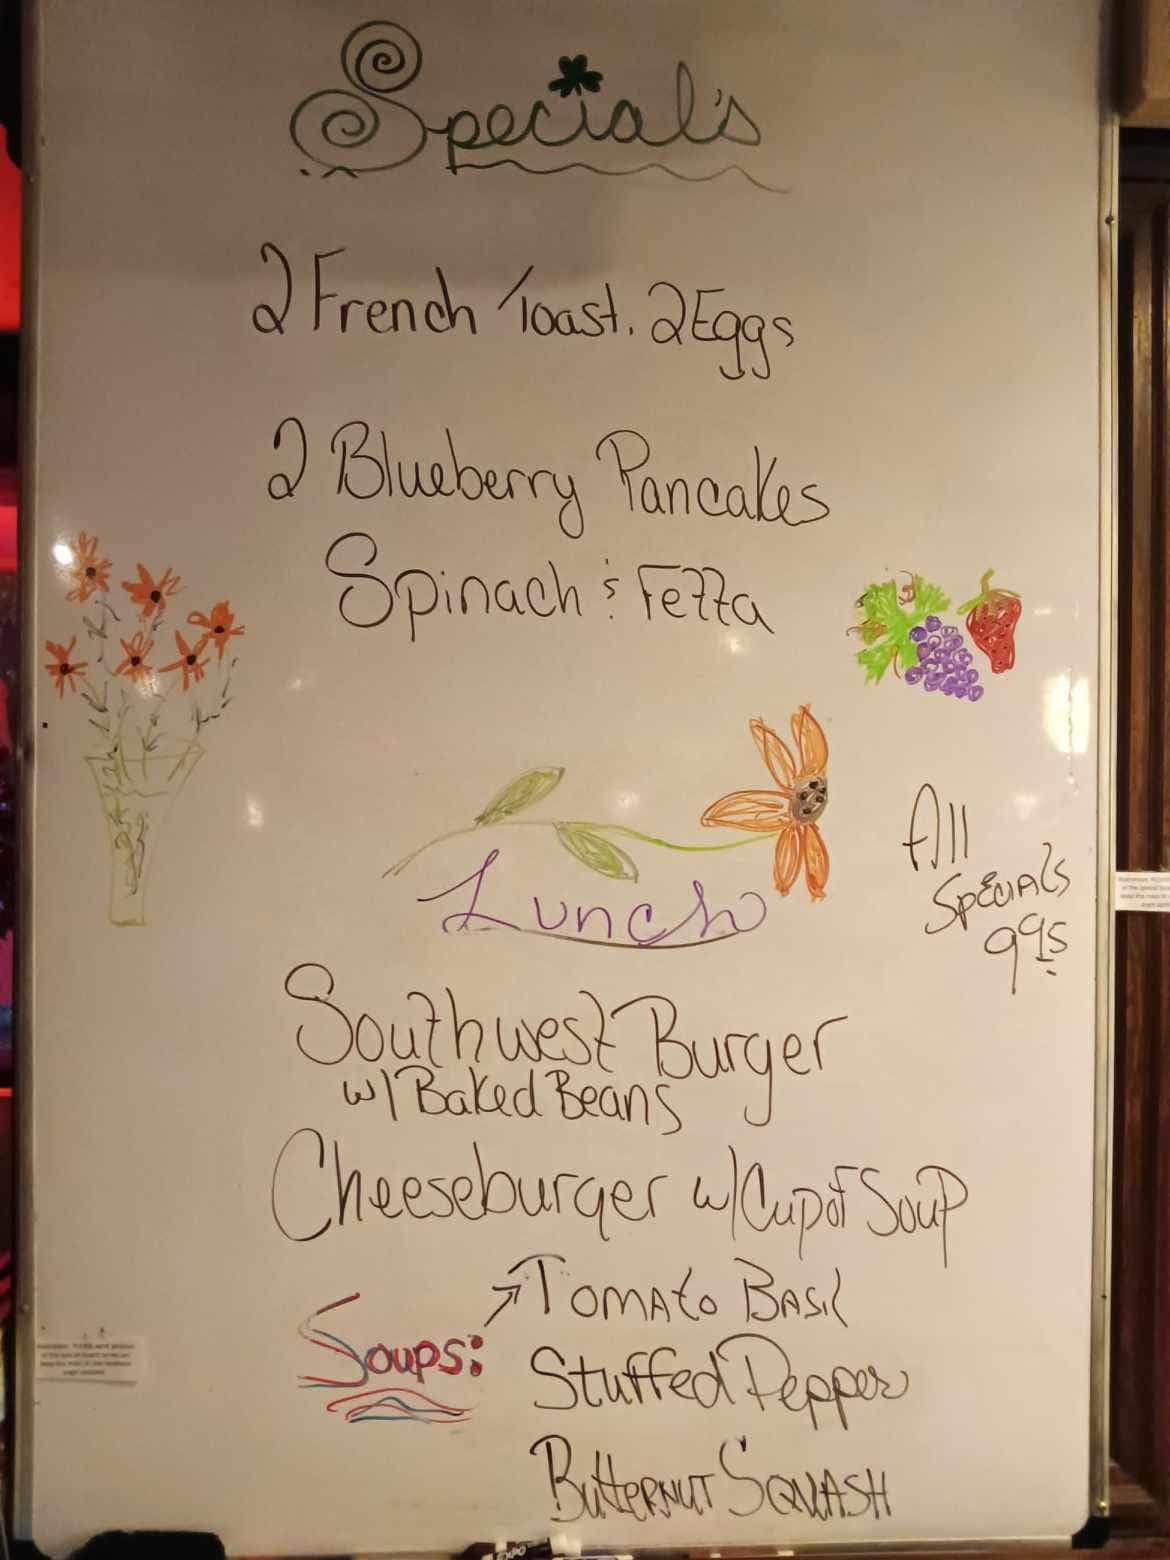 Special's
2 French Toast. 2 Eggs
2 Blueberry Pancakes
Spinach & Fetta
All
Specials
995
Lunch
Southwest Burger
w/ Baked Beans
Cheeseburger w/ Cup of Soup
Soups:
Tomato Basil
Stuffed Pepper
Butternut Squash